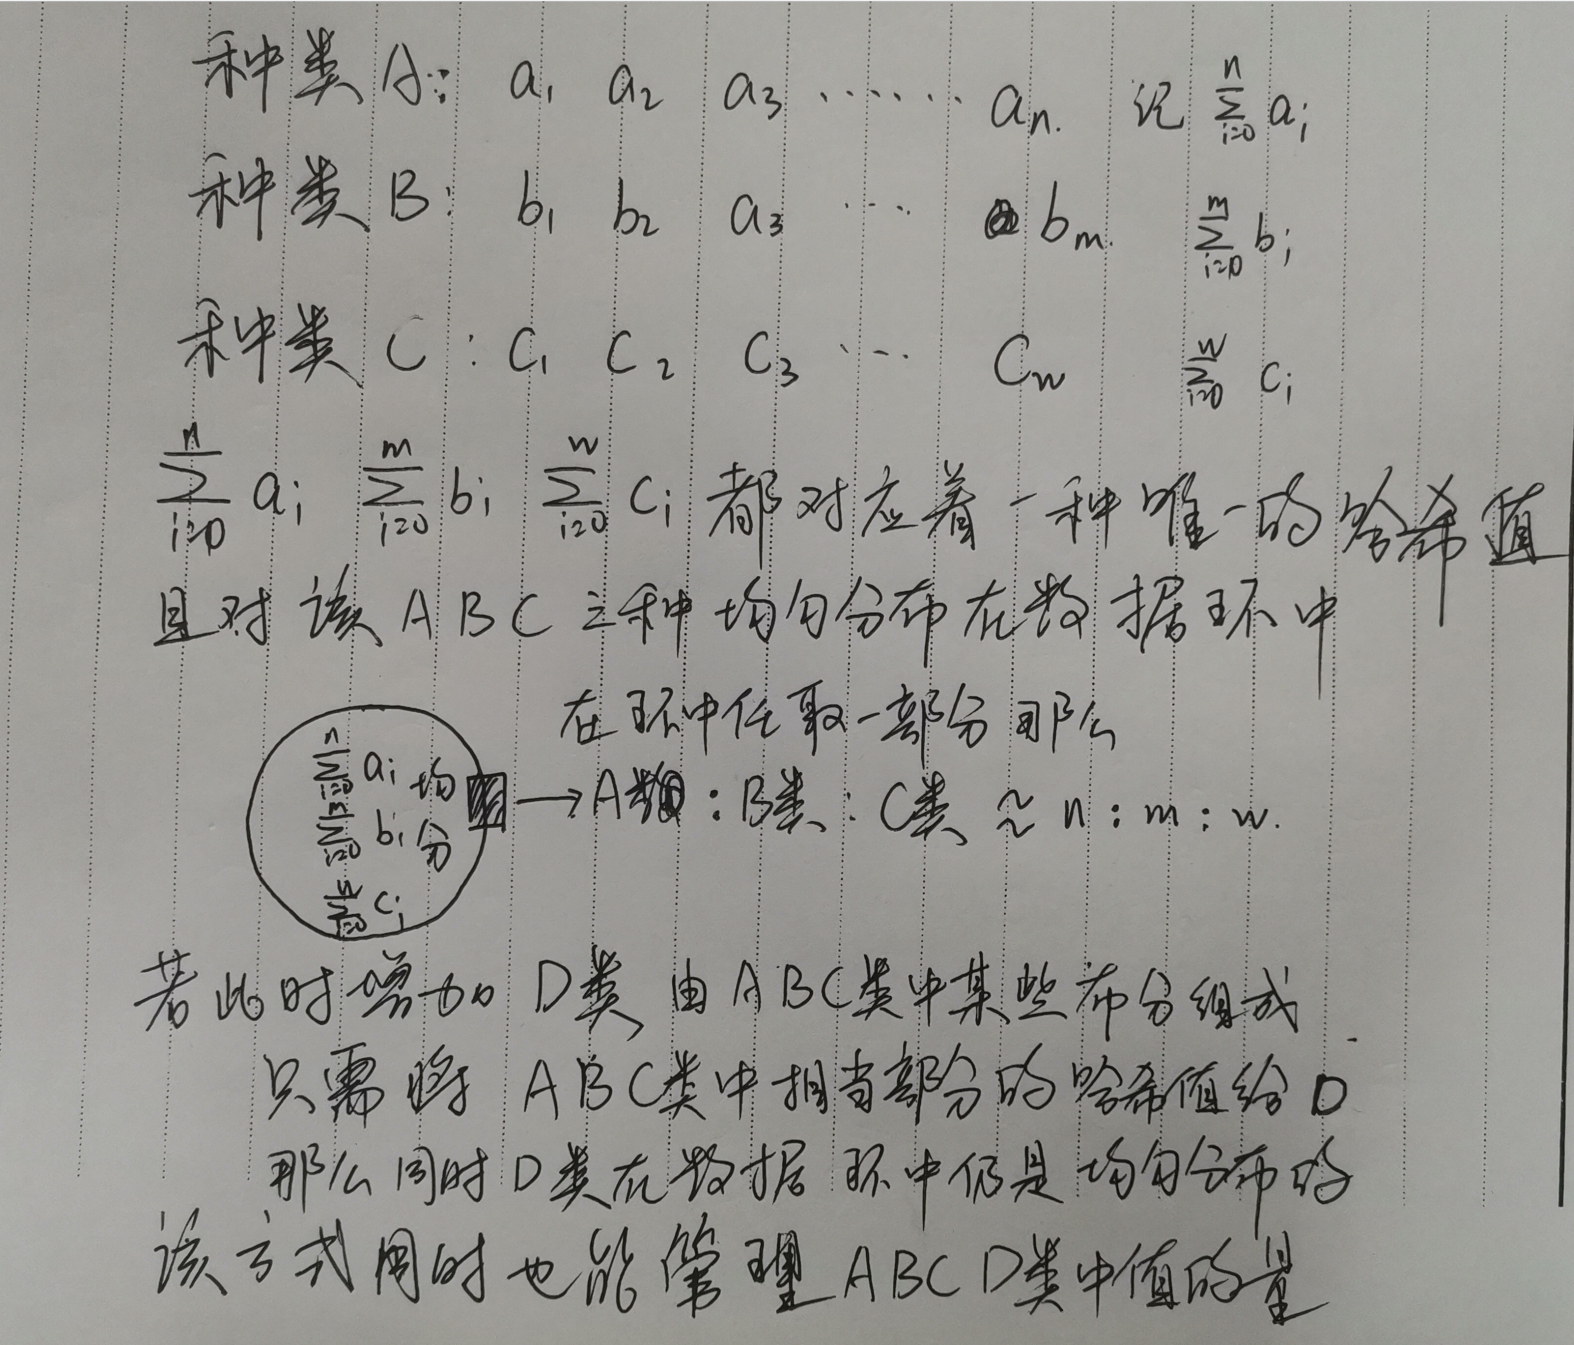 种类A: a₁ a₂ a₃ ...... aₙ. 记 ∑ⁿᵢ₌₀ aᵢ
种类B: b₁ b₂ a₃ ... bₘ. ∑ᵐᵢ₌₀ bᵢ
种类C: C₁ C₂ C₃ ... C_w ∑ʷᵢ₌₀ Cᵢ
∑ⁿᵢ₌₀ aᵢ ∑ᵐᵢ₌₀ bᵢ ∑ʷᵢ₌₀ Cᵢ 都对应着一种唯一的哈希值
且对该ABC三种均匀分布在数据环中
在环中任取一部分那么
∑ⁿᵢ₌₀ aᵢ 均 → A类:B类:C类 ≈ n:m:w.
∑ᵢ₌₀ bᵢ 分
∑ᵢ₌₀ Cᵢ
若此时增加D类 由ABC类中某些布分组成.
只需将ABC类中相当部分的哈希值给D
那么同时D类在数据环中仍是均匀分布的
该方式同时也能管理ABCD类中值的量